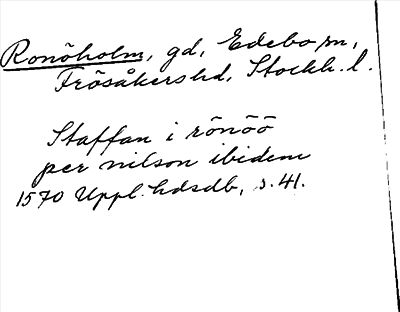 Ronöholm, gd, Edebo sn,
Frösåkers hd, Stockh. l.
Staffan i rönöö
per nilson ibidem
1570 Uppl. hdsdb, s. 41.